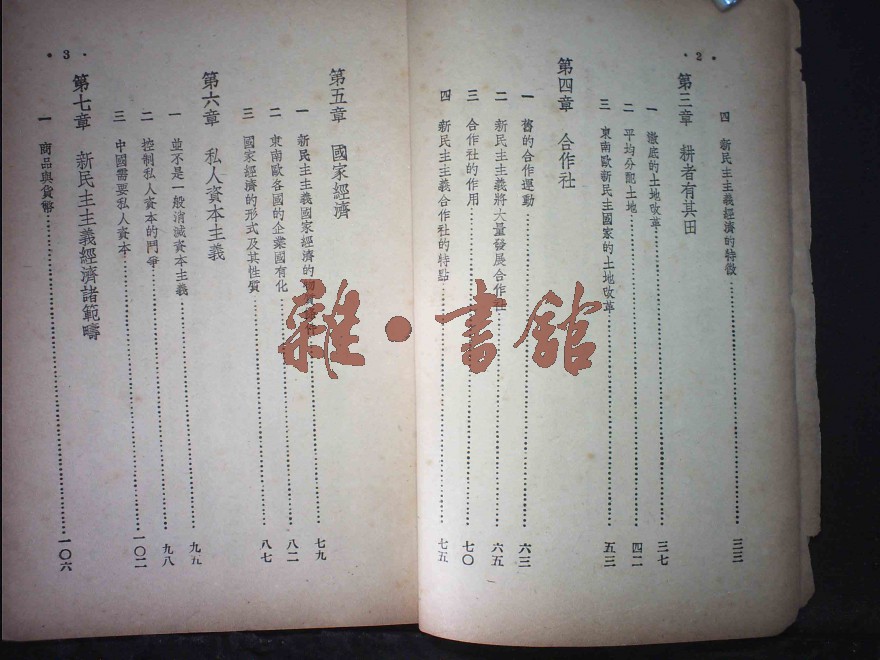 ·2·
四 新民主主義經濟的特徵……三三
第三章 耕者有其田
一 澈底的土地改革……三七
二 平均分配土地……四二
三 東南歐新民主國家的土地改革……五三
第四章 合作社
一 舊的合作運動……六三
二 新民主主義將大量發展合作社……六五
三 合作社的作用……七〇
四 新民主主義合作社的特點……七五
·3·
第五章 國家經濟
一 新民主主義國家經濟的……七九
二 東南歐各國的企業國有化……八二
三 國家經濟的形式及其性質……八七
第六章 私人資本主義
一 並不是一般消滅資本主義……九五
二 控制私人資本的鬥爭……九八
三 中國需要私人資本……一〇二
第七章 新民主主義經濟諸範疇
一 商品與貨幣……一〇六
雜·書館